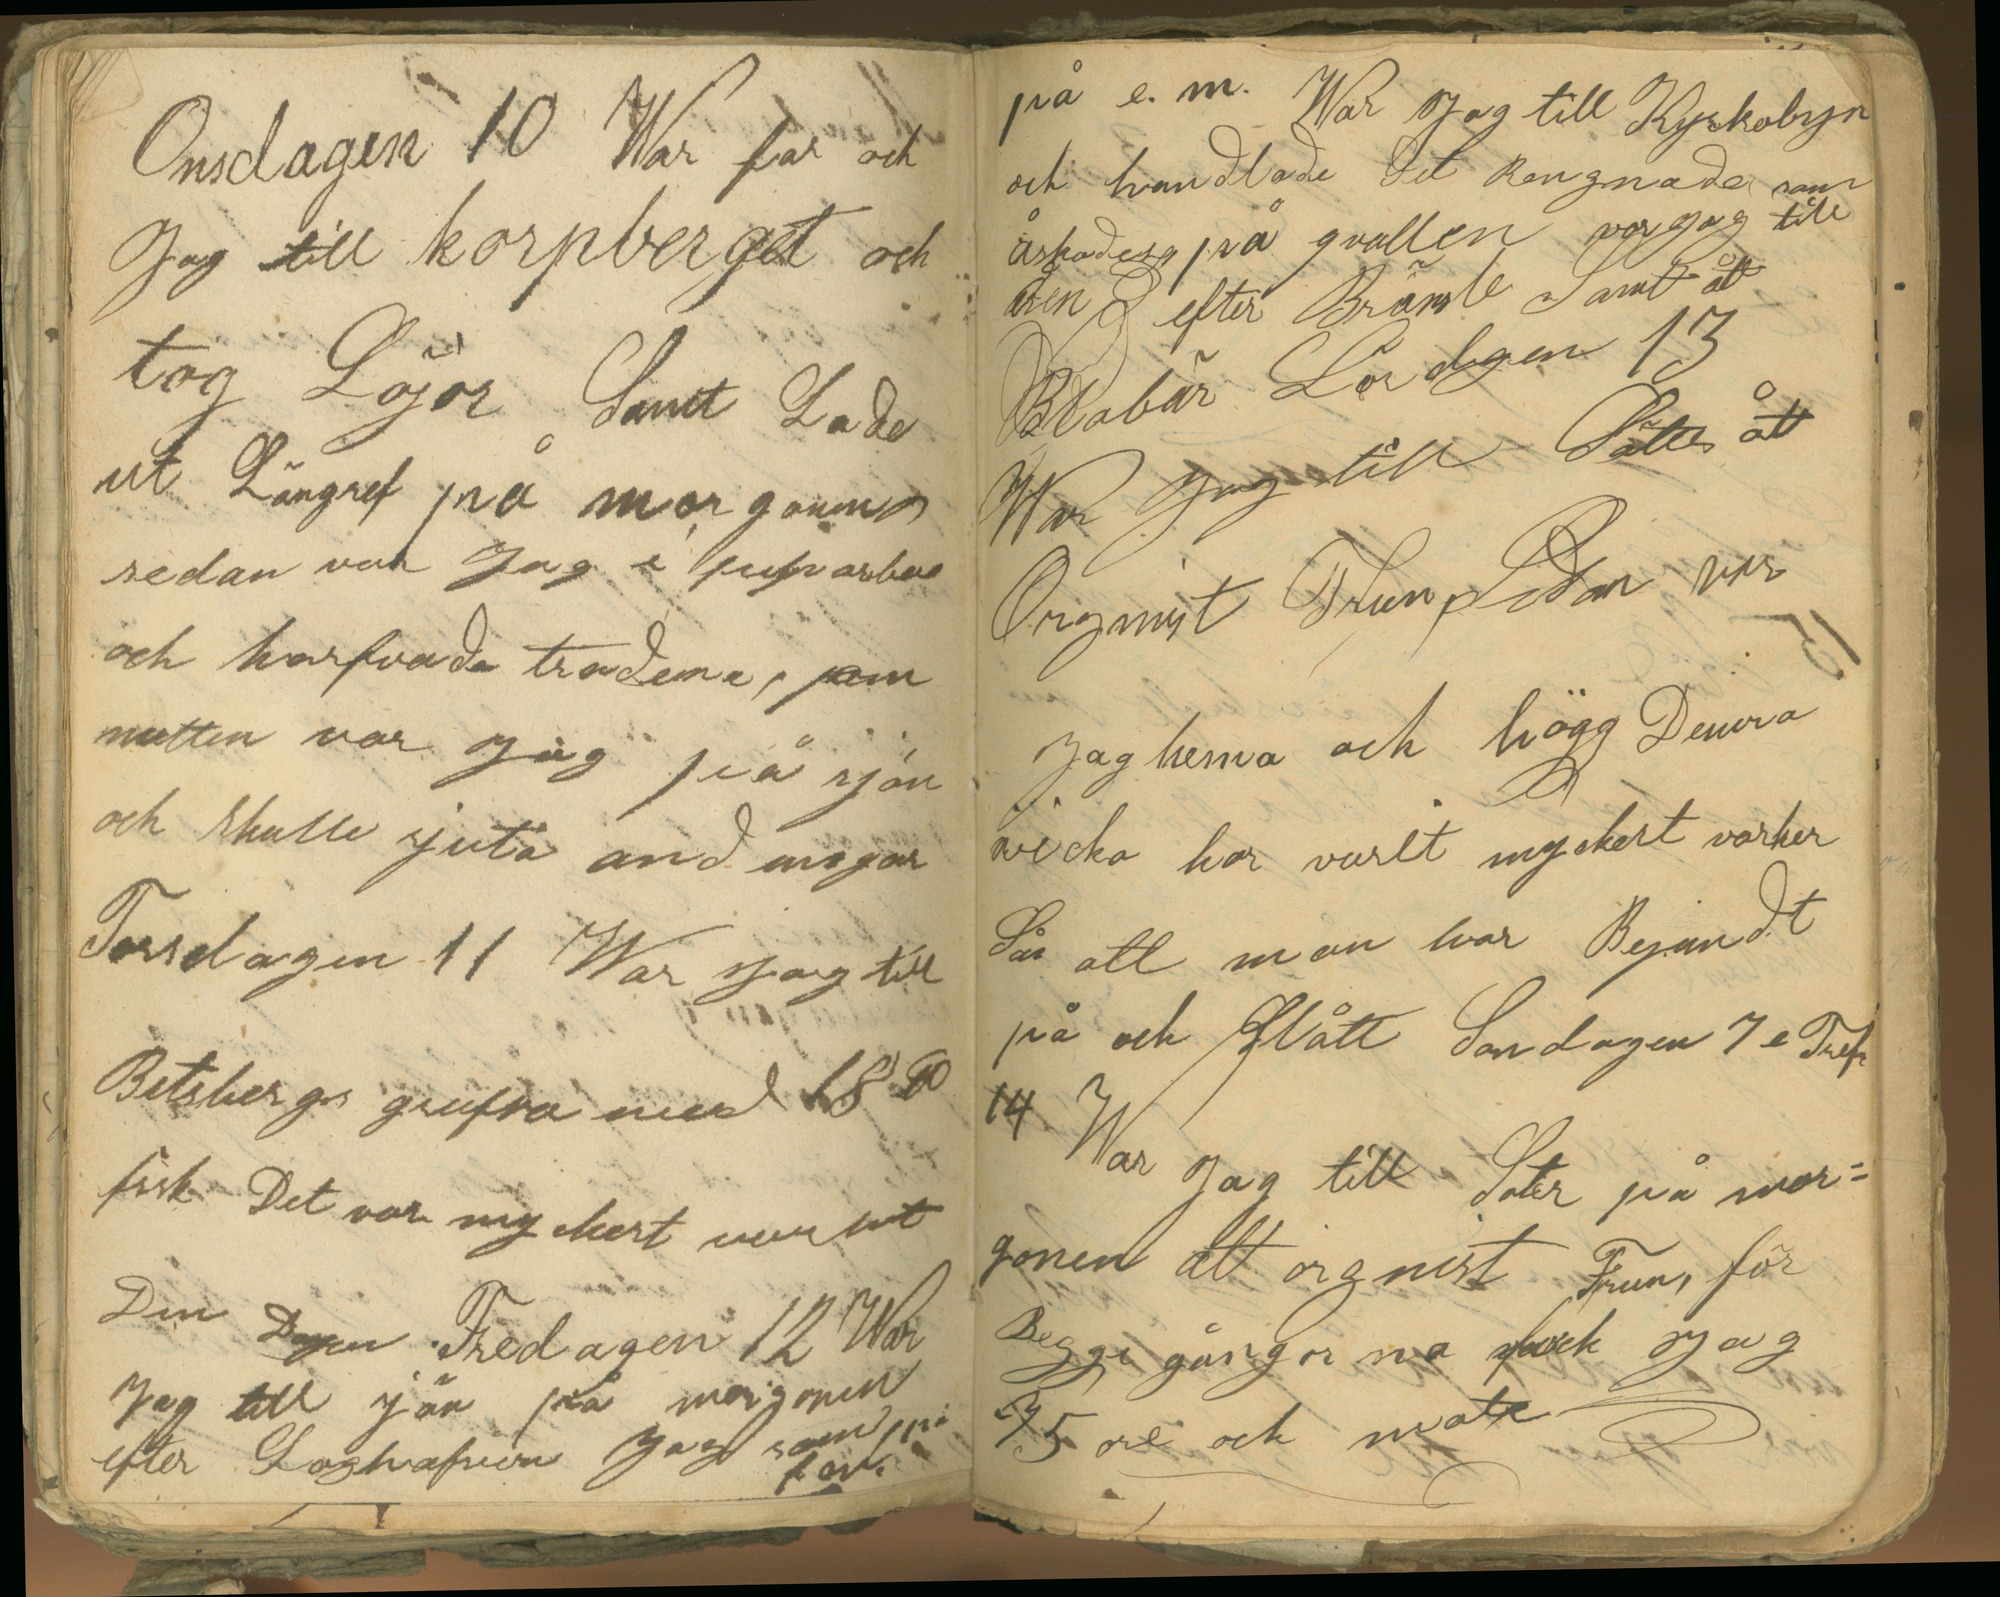 Onsdagen 10 War far och
Jag till korpberget och
tog Löjor Samt Lade
ut Långref på morgonen
sedan var Jag i
och harfvade tradena,
natten var Jag på sjön
och skulle sjuta andungar
Torsdagen 11 War Jag till
Bitsbergs grufva med 18
fisk Det var myckert varmt
Den Fredagen 12 War
Jag till sjön på morgonen
efter Jag som på
på e. m. War Jag till Kyrkobyn
och handlade Det Rengnade som
åskades på qvallen var Jag till
åsen efter Bränsle Samt åt
Blobär Lördagen 13
War Jag till Säter åt
Orgnist Frun, Sedan var
Jag hema och högg Denna
vicka har varit myckert varker
Så att man har Bejundt
på och Slått Söndagen 7 e Tref
14 War Jag till Säter på mor=
gonen åt orgnist Frun, för
Begge gångorna fick Jag
75 öre och mate